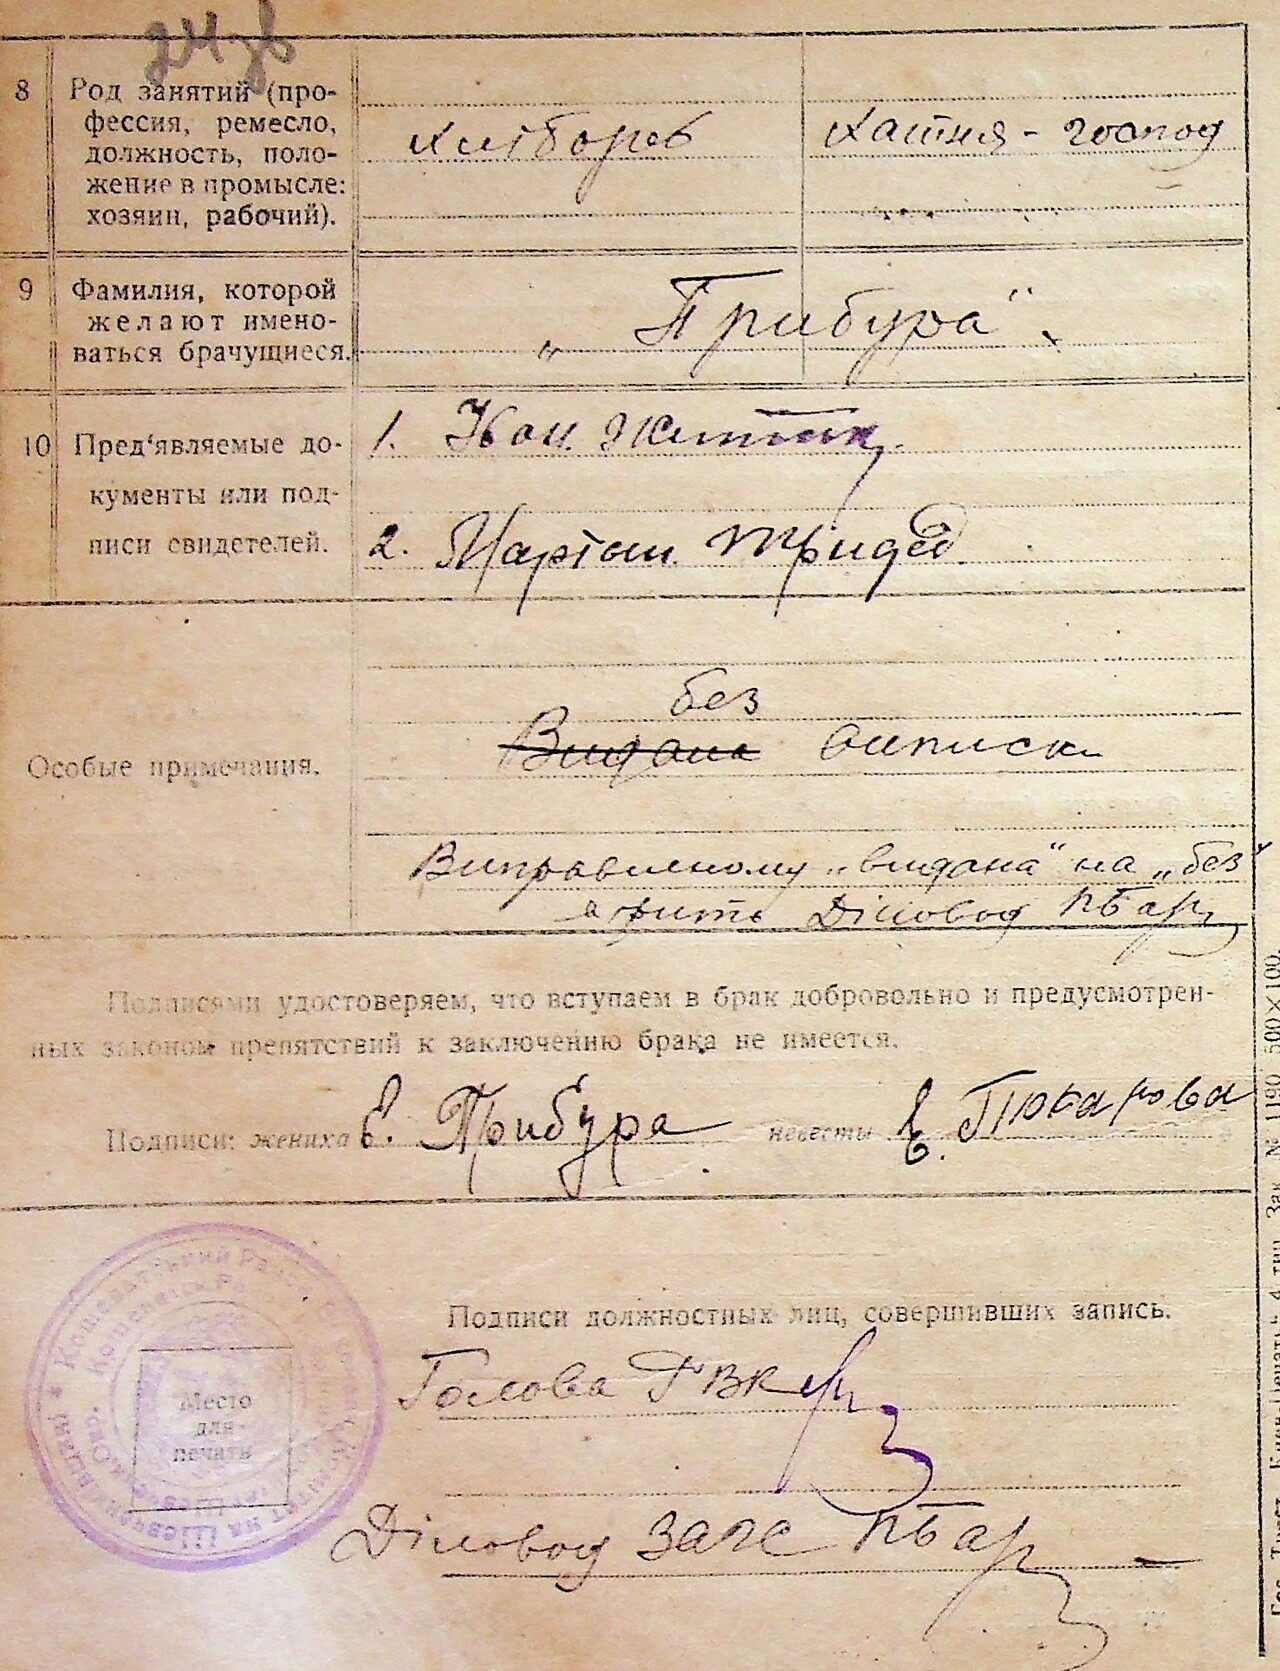 24зв
8 Род занятий (про-
фессия, ремесло,
должность, поло-
жение в промысле:
хозяин, рабочий).
хлібороб
хатня - господ
9 Фамилия, которой
желают имено-
ваться брачущиеся.
„Прибура"
10 Пред‘являемые до-
кументы или под-
писи свидетелей.
1. Іван
2. Мартин
Особые примечания.
без
Видана виписки
Виправленому „видана" на „без"
вірить Діловод
Подписями удостоверяем, что вступаем в брак добровольно и предусмотрен-
ных законом препятствий к заключению брака не имеется.
Подписи: жениха Є. Прибура невесты Є.
Подписи должностных лиц, совершивших запись.
Голова РВК
Место
для
печати
Діловод ЗАГС
Зак. № 1190 500×100.